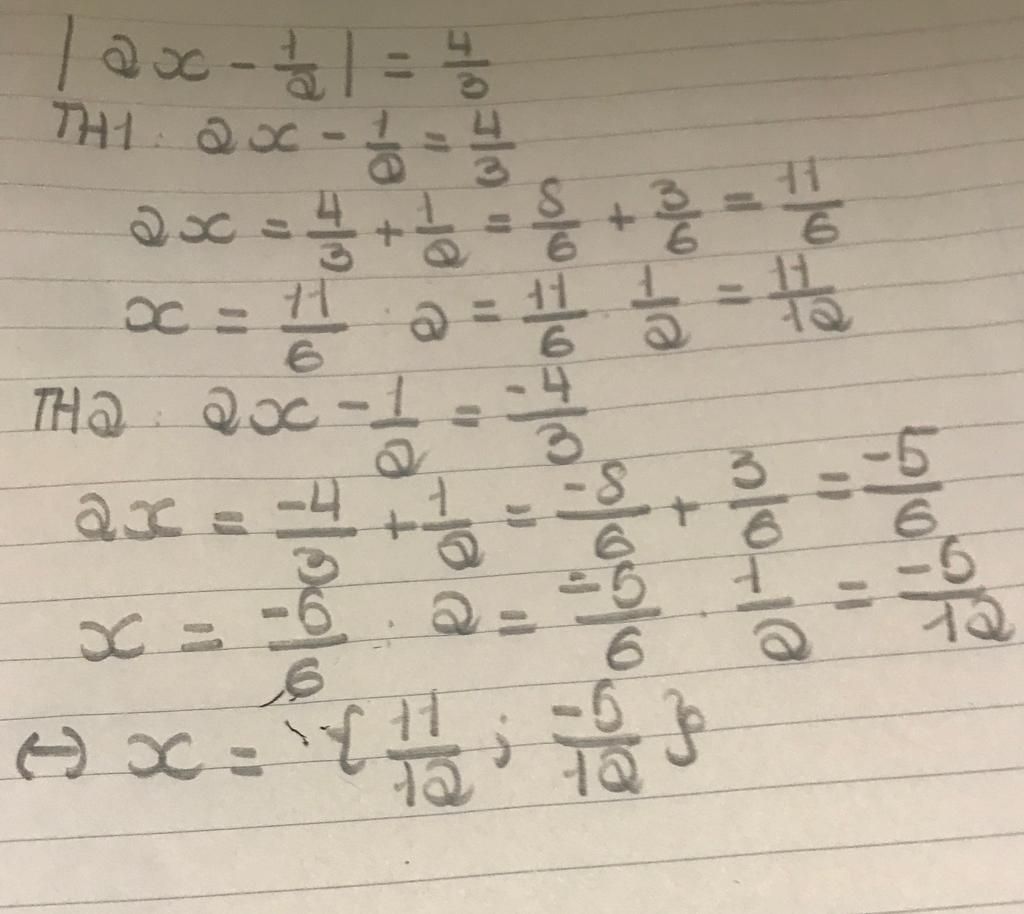 |2x - 1/2| = 4/3
TH1: 2x - 1/2 = 4/3
2x = 4/3 + 1/2 = 8/6 + 3/6 = 11/6
x = 11/6 : 2 = 11/6 . 1/2 = 11/12
TH2: 2x - 1/2 = -4/3
2x = -4/3 + 1/2 = -8/6 + 3/6 = -5/6
x = -5/6 : 2 = -5/6 . 1/2 = -5/12
(-) x = { 11/12 ; -5/12 }